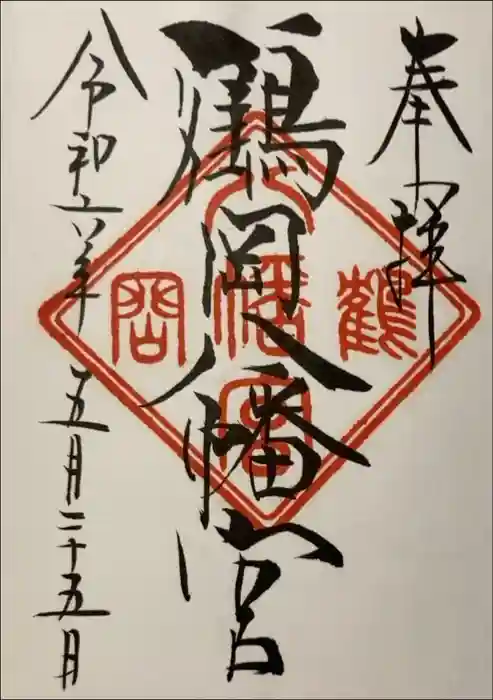 奉拝
鶴岡八幡宮
令和六年五月二十五日
鶴
岡
八幡宮